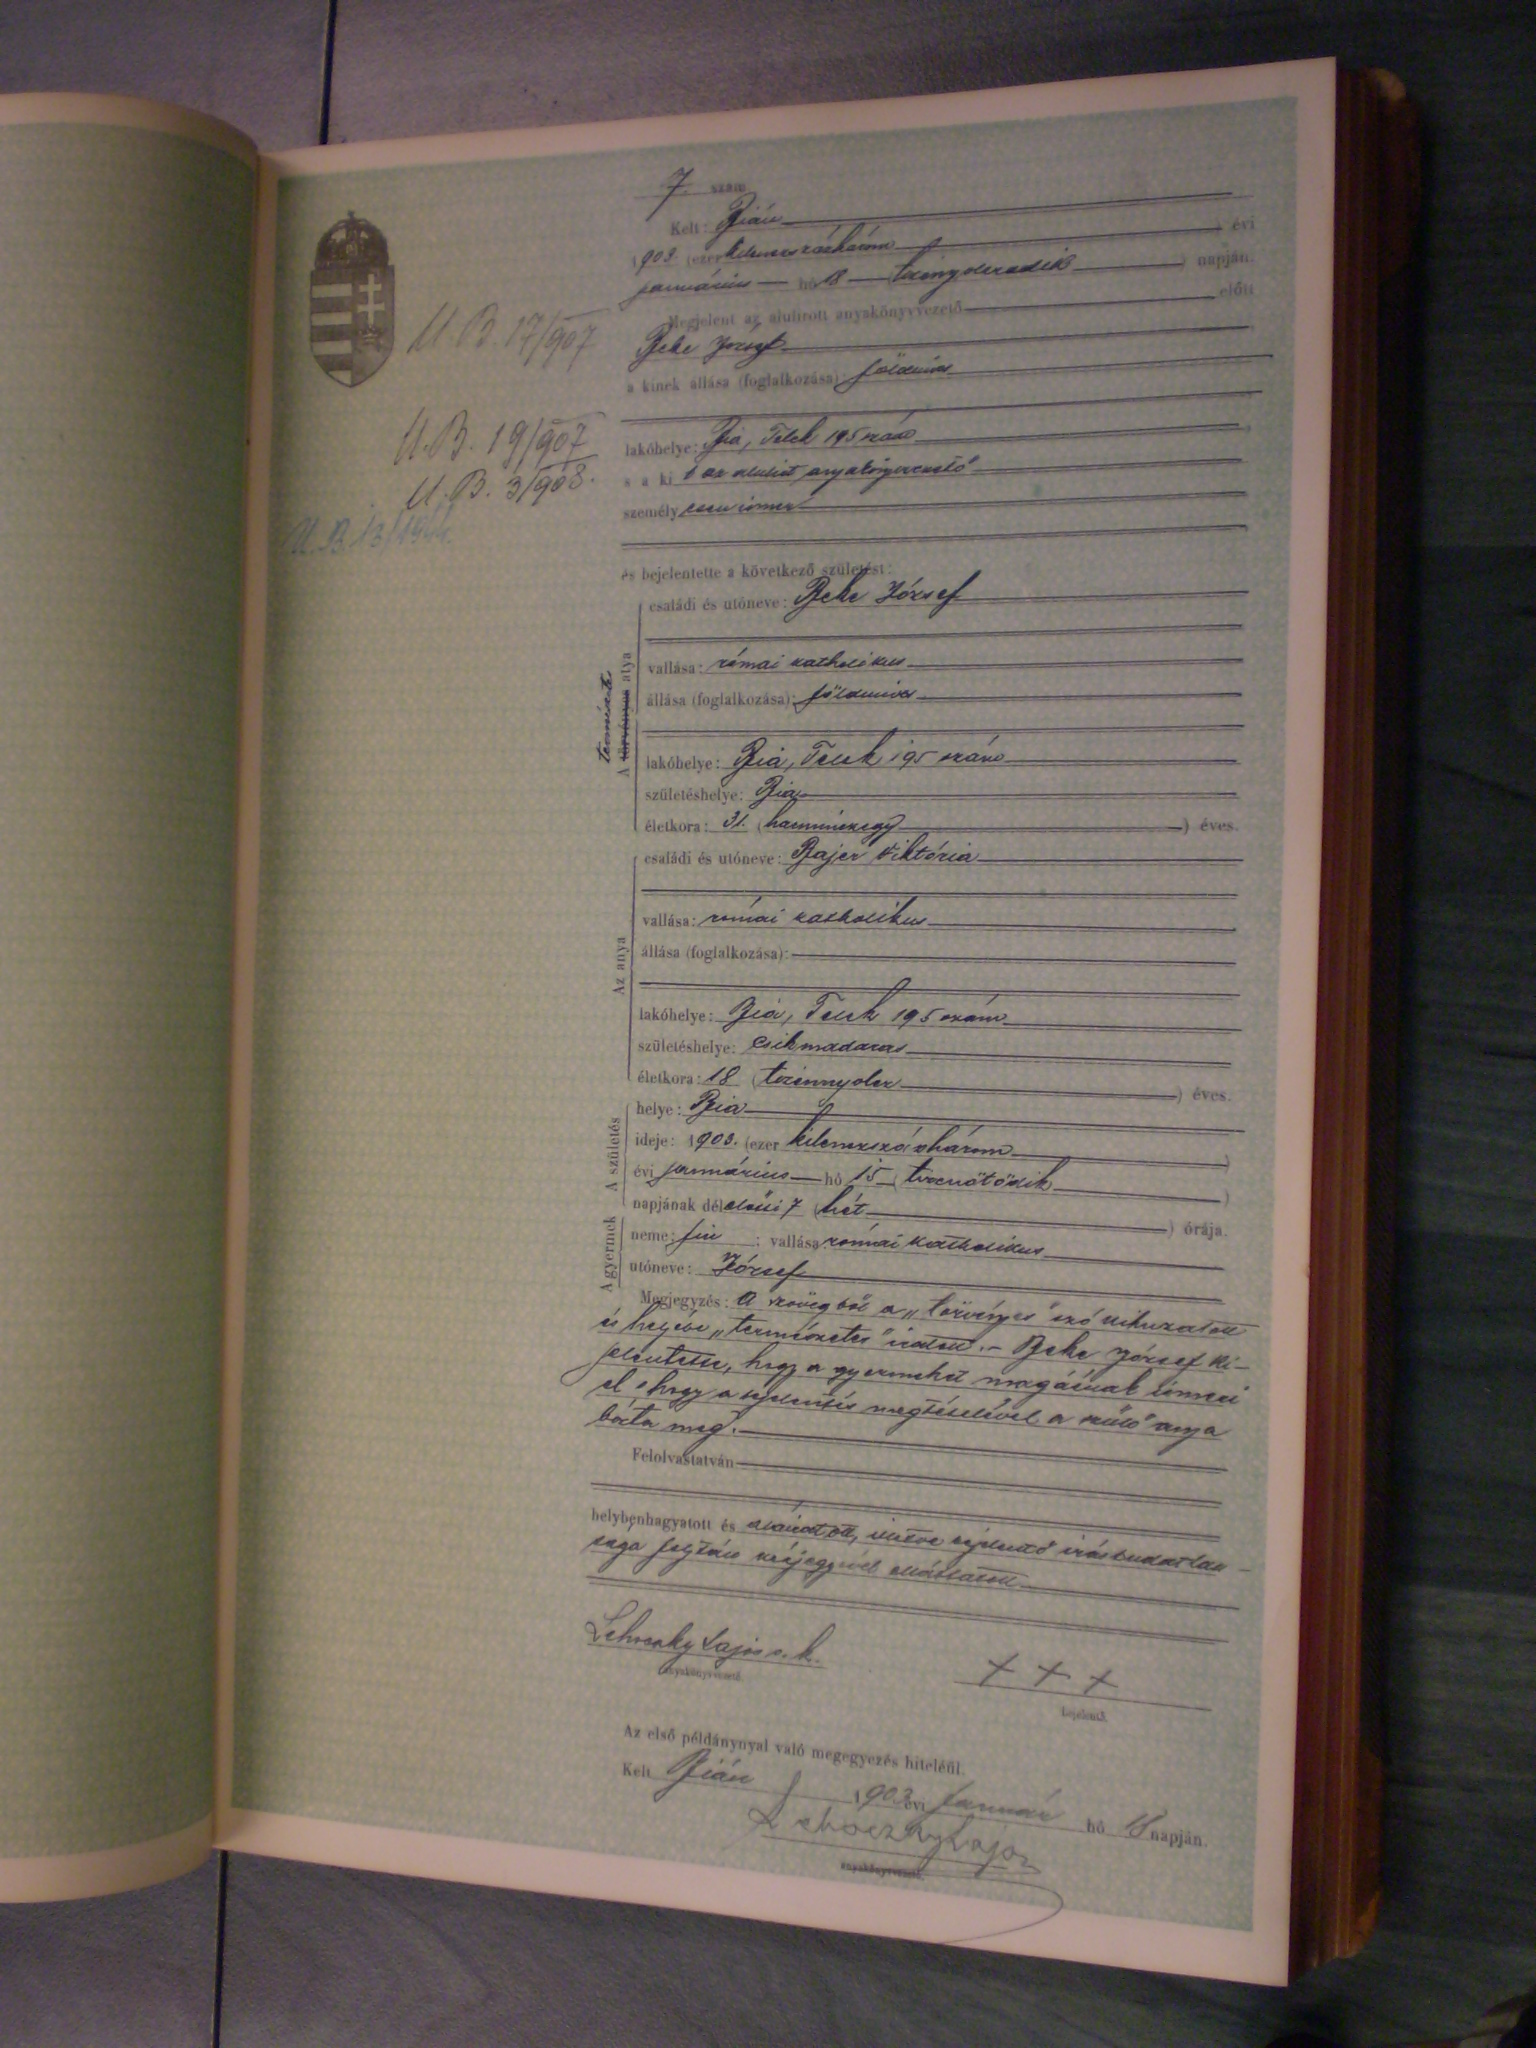 7. szám
Kelt: Bián
1903. (ezerkilencszázhárom) évi
január hó 18 (tizennyolcadik) napján
Megjelent az alulirott anyakönyvvezető előtt
Beke József
a kinek állása (foglalkozása): földmíves
lakóhelye: Bia, Telek 195 szám
s a ki t az alulírt anyakönyvvezető
személyesen ismer
és bejelentette a következő születést:
A törvényes atya
természetes
családi és utóneve: Beke József
vallása: római katholikus
állása (foglalkozása): földmíves
lakóhelye: Bia, Telek 195 szám
születéshelye: Bia
életkora: 31. (harminczegy) éves.
Az anya
családi és utóneve: Bajer Viktória
vallása: római katholikus
állása (foglalkozása):
lakóhelye: Bia, Telek 195 szám
születéshelye: Csikmadaras
életkora: 18 (tizennyolcz) éves.
A születés
helye: Bia
ideje: 1903. (ezer kilenczszázhárom)
évi január hó 15 (tizenötödik)
napjának délelőtti 7 (hét) órája.
A gyermek
neme: fiú ; vallása: római katholikus
utóneve: József
Megjegyzés: A szövegből a „törvényes" szó kihuzatott
és helyébe „természetes" iratott. – Beke József ki-
jelentette, hogy a gyermeket magáénak ismeri
el s hogy a bejelentés megtételével a szülő anya
bízta meg.
Felolvastatván
helybenhagyatott és aláíratott, illetve bejelentő irástudatlan-
sága folytán kézjegyével elláttatott
Lehoczky Lajos s. k.
anyakönyvvezető.
+ + +
bejelentő.
Az első példánynyal való megegyezés hiteléül.
Kelt Bián 1903 évi január hó 18 napján.
Lehoczky Lajos
anyakönyvvezető.
U. B. 17/907
U. B. 19/907
U. B. 3/908.